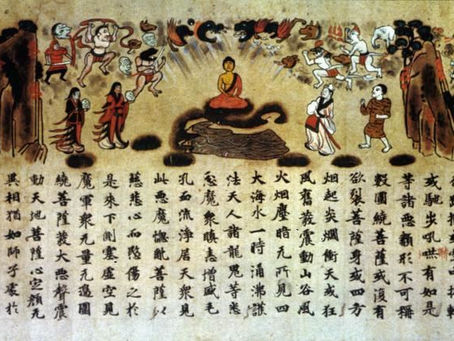 或馳步吼哮有如是
等諸惡類形不可稱
數圍繞菩薩或復有
欲裂菩薩身或四方
烟起炎烟衝天或狂
風奮發震動山谷風
火烟塵暗无所見四
大海水一時涌沸護
法天人諸龍鬼等悉
忿魔衆瞋恚增盛毛
孔血流淨居天衆見
此惡魔惱亂菩薩以
慈悲心而愍傷之於
是來下側塞虛空見
魔軍衆无量无邊圍
繞菩薩發大惡聲震
動天地菩薩心定顏无
異相猶如師子處於